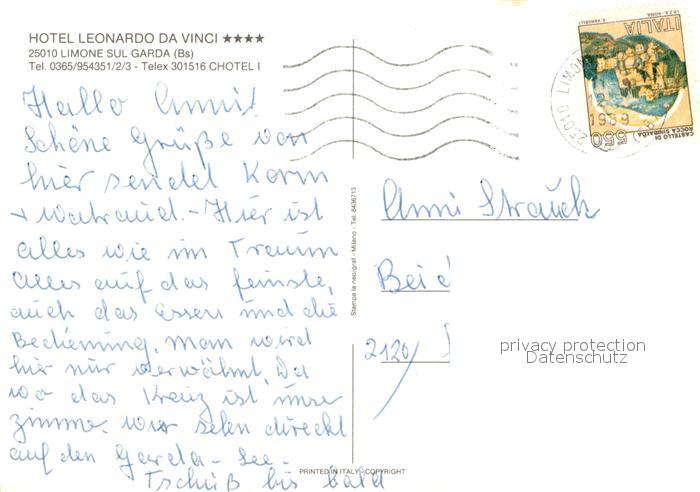 HOTEL LEONARDO DA VINCI ★★★★
25010 LIMONE SUL GARDA (Bs)
Tel. 0365/954351/2/3 - Telex 301516 CHOTEL I
I.P.Z.S. - ROMA
ITALIA
CASTELLO DI
ROCCA SINIBALDA
550
25010 LIMON
1989
Hallo Anni!
Schöne Grüße von
hier sendet Karin
+ Waltraud. - Hier ist
alles wie im Traum
alles auf das feinste,
auch das Essen und die
Bedienung. Man wird
hier nur verwöhnt. Da
wo das Kreuz ist unser
Zimmer. wir sehen direckt
auf den Garda-See.
Tschüß bis bald
Stampa la neograf - Milano - Tel. 8436713
Anni
Bei d
2120/
privacy protection
Datenschutz
PRINTED IN ITALY - COPYRIGHT